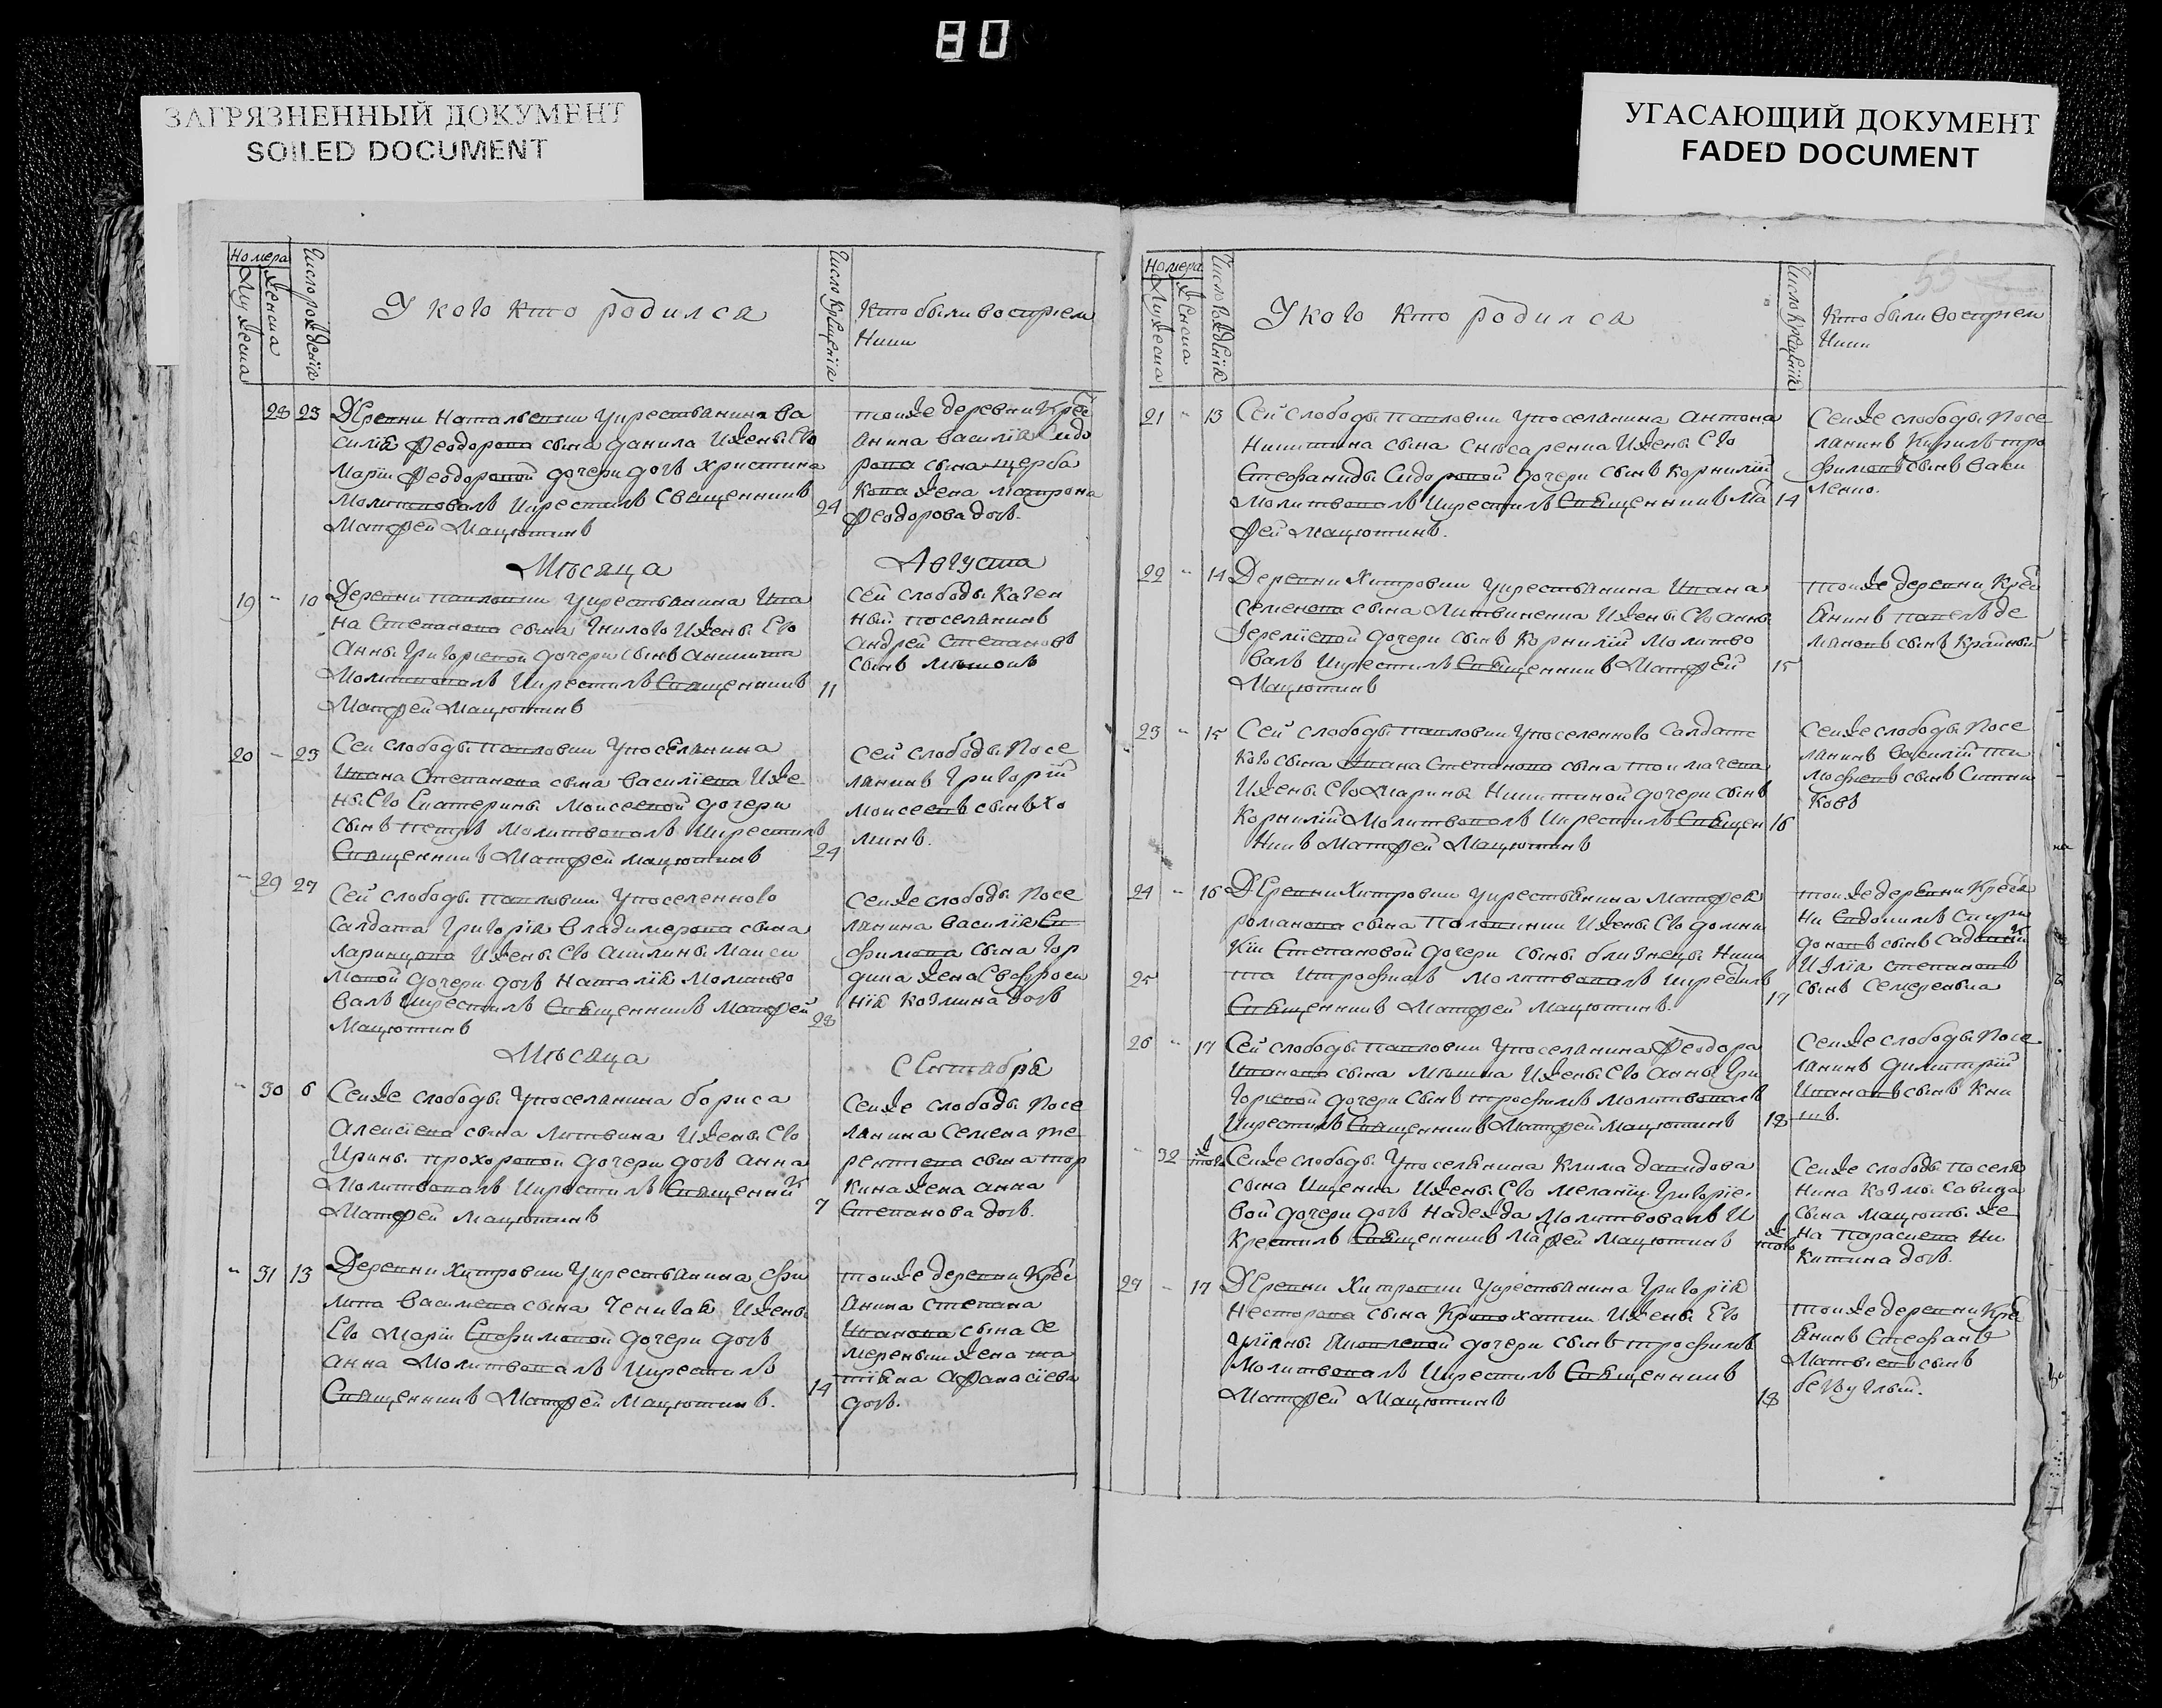 80
ЗАГРЯЗНЕННЫЙ ДОКУМЕНТ
SOILED DOCUMENT
УГАСАЮЩИЙ ДОКУМЕНТ
FADED DOCUMENT
Номера
Мужеска
Женска
Число рождения
У кого кто родился
Число крещения
Кто были восприем
ники
28 23 Деревни Натальевки у крестьянина Ва
силия Феодорова сына Данила и жены его
Марiи Феодоровой дочери дочь Христина
Молитвовалъ и крестилъ Священникъ 24
Матфей Мацютинъ
тойже деревни крес
анина Василiя Сидо
рова сына Щерба
кова жена Матрона
Феодорова дочь.
Мѣсяца
Августа
19 - 10 Деревни Павловки у крестьянина Ива
на Степанова сына Гнилого и жены его
Анны Григорiевой дочери сынъ Аникита
Молитвовалъ и крестилъ Священникъ 11
Матфей Мацютинъ
Сей слободы казен
ный поселянинъ
Андрей Степановъ
сынъ
20 - 23 Сей слободы Павловки у поселянина
Ивана Степанова сына Василiева и же
ны его Екатерины Моисеевой дочери
сынъ Петръ Молитвовалъ и крестилъ 24
Священникъ Матфей Мацютинъ
Сей слободы посе
лянинъ Григорiй
Моисеевъ сынъ Хо
минъ.
- 29 27
Сей слободы Павловки у поселенного
Салдата Григорiя Владимерова сына
Ларинцова и жены его Акилины Макси
мовой дочери дочь Наталiя Молитво
валъ и крестилъ Священникъ Матфей 28
Мацютинъ
Сейже слободы посе
лянина Василiя Ев
фимова сына Гор
дина жена Евфроси
нiя Козмина дочь
Мѣсяца
Сентября
- 30 6 Сейже слободы у поселянина Бориса
Алексiева сына Литвина и жены его
Ирины Прохоровой дочери дочь Анна
Молитвовалъ и крестилъ Священникъ 7
Матфей Мацютинъ
Сейже слободы посе
лянина Семена Те
рентиева сына Тор
кина жена Анна
Степанова дочь.
- 31 13 Деревни Хитровки у крестьянина Фи
липа Василиева сына и жены
его Марiи Евфимовой дочери дочь
Анна Молитвовалъ и крестилъ 14
Священникъ Матфей Мацютинъ.
тойже деревни крес
анина Степана
Иванова сына Се
меренъки жена Та
тiяна Афанасiева
дочь.
Номера
Мужеска
Женска
Число рождения
У кого кто родился
Число крещения
55
Кто были восприем
ники
21 - 13 Сей слободы Павловки у поселянина Антона
Никитина сына Слюсаренка и жены его
Стефаниды Сидоровой дочери сынъ Корнилiй
Молитвовалъ и крестилъ Священникъ Мат 14
фей Мацютинъ.
Сейже слободы посе
лянинъ Кирилъ Тро
фимовъ сынъ Васи
ленко.
22 - 14 Деревни Хитровки у крестьянина Ивана
Семенова сына Литвиненка и жены его Анны
Iеремiевой дочери сынъ Корнилiй Молитво
валъ и крестилъ Священникъ Матфей 15
Мацютинъ
тойже деревни крес
янинъ Павелъ Де
мяновъ сынъ Крайный
23 - 15 Сей слободы Павловки у поселенного Салдатс
кого сына Ивана Степанова сына Толмачева
и жены его Марины Никитиной дочери сынъ
Корнилiй Молитвовалъ и крестилъ Священ 16
никъ Матфей Мацютинъ
Сейже слободы посе
лянинъ Василiй Ти
мофiевъ сынъ Ситни
ковъ
24 - 16 Деревни Хитровки у крестьянина Матфея
Романова сына Половинки и жены его Домни
кiи Степановой дочери сыны близнецы Ники
25 та и Трофимъ Молитвовалъ и крестилъ 17
Священникъ Матфей Мацютинъ.
тойже деревни крестя
ни Евдокимъ Спири
доновъ сынъ Садовый
и Илiя Степановъ
сынъ Семеренька
26 - 17 Сей слободы Павловки у поселянина Феодора
Иванова сына и жены его Анны Гри
горiевой дочери сынъ Трофимъ Молитвовалъ
и крестилъ Священникъ Матфей Мацютинъ 18
Сейже слободы посе
лянинъ Димитрiй
Ивановъ сынъ Кни
шъ.
- 32 тогож Сейже слободы у поселянина Клима Давидова
сына Ищенка и жены его Меланiи Григорiе
вой дочери дочь Надежда Молитвовалъ и
крестилъ Священникъ Матфей Мацютинъ тогож
Сейже слободы поселя
нина Козмы Савина
сына Мацюты же
на Параскева Ни
китина дочь.
27 - 17 Деревни Хитровки у крестьянина Григорiя
Несторова сына Кривохатки и жены его
Улiяны Яковлевой дочери сынъ Трофимъ
Молитвовалъ и крестилъ Священникъ
Матфей Мацютинъ 18
тойже деревни крес
янинъ Стефанъ
Матвiевъ сынъ
Безуглый.